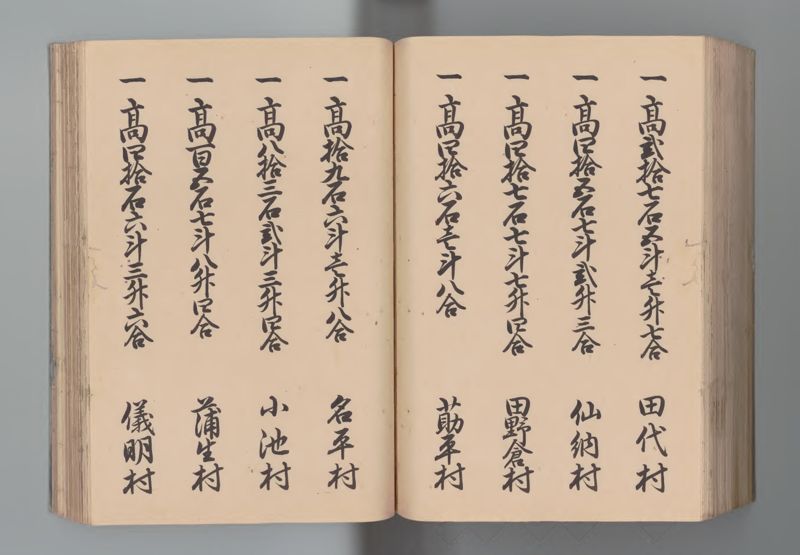 一 高弐拾七石五斗壱升七合 田代村
一 高四拾五石七斗弐升三合 仙納村
一 高四拾七石七斗七升四合 田野倉村
一 高四拾六石壱斗八合 莇平村
一 高拾九石六斗壱升八合 名平村
一 高八拾三石弐斗三升四合 小池村
一 高百五石七斗八升四合 蒲生村
一 高四拾石六斗三升六合 儀明村